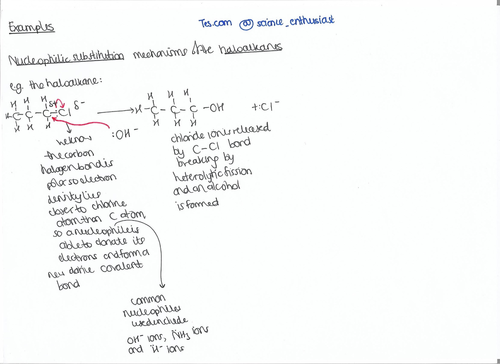 Examples
Tes.com @ science_enthusiast
Nucleophilic substitution mechanisms of the haloalkanes
e.g. the haloalkane:
H H H δ+
H-C-C-C-Cl δ-
H H H
:OH-
H H H
H-C-C-C-OH + :Cl-
H H H
we know
the carbon
halogen bond is
polar so electron
density lies
closer to chlorine
atom than C atom,
so a nucleophile is
able to donate its
electrons and form a
new dative covalent
bond
chloride ion is released
by C-Cl bond
breaking by
heterolytic fission
and an alcohol
is formed
common
nucleophiles
used include
OH- ions, NH3 ions
and H- ions